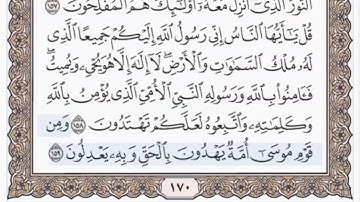 ٱلنُّورَ ٱلَّذِىٓ أُنزِلَ مَعَهُۥٓ أُو۟لَـٰٓئِكَ هُمُ ٱلْمُفْلِحُونَ ١٥٧
قُلْ يَـٰٓأَيُّهَا ٱلنَّاسُ إِنِّى رَسُولُ ٱللَّهِ إِلَيْكُمْ جَمِيعًا ٱلَّذِى
لَهُۥ مُلْكُ ٱلسَّمَـٰوَٰتِ وَٱلْأَرْضِ ۖ لَآ إِلَـٰهَ إِلَّا هُوَ يُحْىِۦ وَيُمِيتُ ۖ
فَـَٔامِنُوا۟ بِٱللَّهِ وَرَسُولِهِ ٱلنَّبِىِّ ٱلْأُمِّىِّ ٱلَّذِى يُؤْمِنُ بِٱللَّهِ
وَكَلِمَـٰتِهِۦ وَٱتَّبِعُوهُ لَعَلَّكُمْ تَهْتَدُونَ ١٥٨ وَمِن
قَوْمِ مُوسَىٰٓ أُمَّةٌ يَهْدُونَ بِٱلْحَقِّ وَبِهِۦ يَعْدِلُونَ ١٥٩
١٧٠